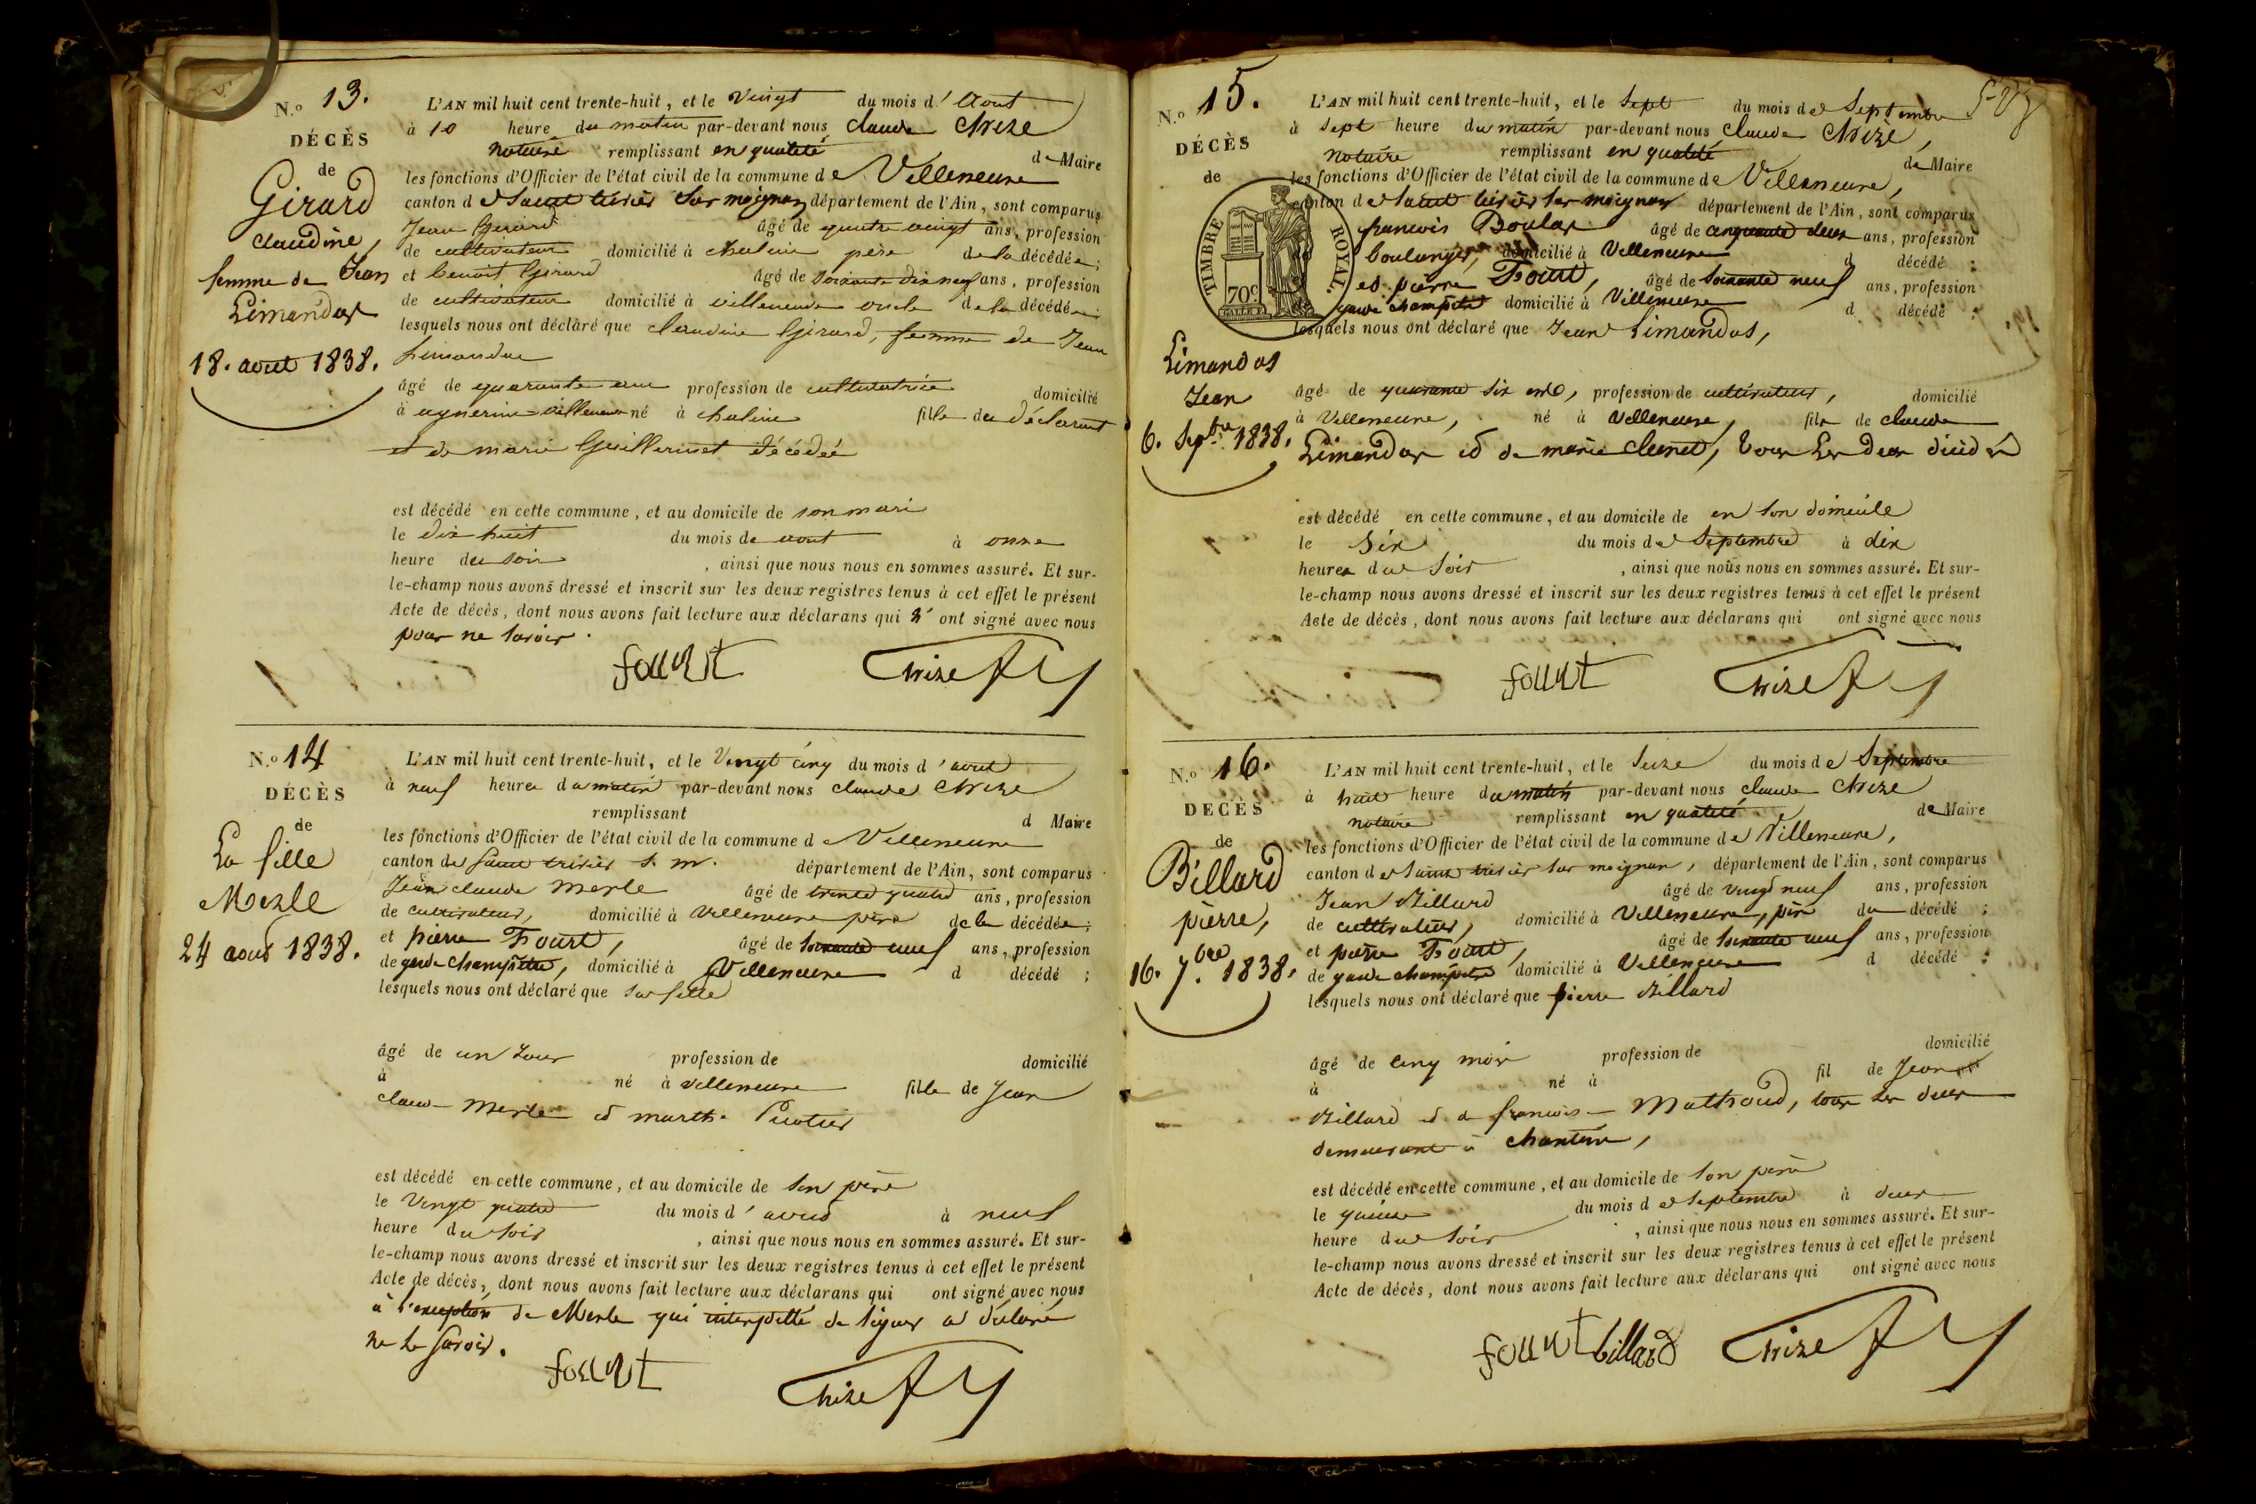 N.º 13.
DÉCÈS
de
Girard
claudine,
femme de Jean
Limandas
18. aout 1838.
L'AN mil huit cent trente-huit, et le vingt du mois d'aout
à 10 heure du matin par-devant nous claude Chize
notaire remplissant en qualité de Maire
les fonctions d'Officier de l'état civil de la commune de Villeneuve
canton de Saint trivier Sur moignans département de l'Ain, sont comparus
Jean Girard âgé de quatre vingt ans, profession
de cultivateur domicilié à chaleins père de la décédée;
et benoit Girard âgé de soixante dix neuf ans, profession
de cultivateur domicilié à villeneuve oncle de la décédée;
lesquels nous ont déclaré que claudine Girard, femme de Jean
Limandas
âgé de quarante profession de cultivatrice domicilié
à villeneuve né à chaleins fille du déclarant
et de marie Guillerminet décédée
est décédé en cette commune, et au domicile de son mari
le dix huit du mois de aout à onze
heure du soir, ainsi que nous nous en sommes assuré. Et sur-
le-champ nous avons dressé et inscrit sur les deux registres tenus à cet effet le présent
Acte de décès, dont nous avons fait lecture aux déclarans qui n' ont signé avec nous
pour ne savoir.
fourut Chize
N.º 14
DÉCÈS
de
La fille
Merle
24 aout 1838.
L'AN mil huit cent trente-huit, et le Vingt cinq du mois d'aout
à neuf heures du matin par-devant nous claude Chize
remplissant d Maire
les fonctions d'Officier de l'état civil de la commune de Villeneuve
canton de Saint trivier s. m. département de l'Ain, sont comparus
Jean claude Merle âgé de trente quatre ans, profession
de cultivateur, domicilié à Villeneuve père de la décédée;
et pierre Fourut, âgé de soixante neuf ans, profession
de garde champêtre, domicilié à Villeneuve d décédé;
lesquels nous ont déclaré que sa fille
âgé de un Jour profession de domicilié
à né à villeneuve fille de Jean
claude Merle et marthe
est décédé en cette commune, et au domicile de son père
le Vingt quatre du mois d'aout à neuf
heure du soir, ainsi que nous nous en sommes assuré. Et sur-
le-champ nous avons dressé et inscrit sur les deux registres tenus à cet effet le présent
Acte de décès, dont nous avons fait lecture aux déclarans qui ont signé avec nous
à l'exception de Merle qui interpellé de signer a déclaré
ne le savoir.
fourut Chize
N.º 15.
DÉCÈS
de
TIMBRE ROYAL.
70c
Limandas
Jean
6. Septbre 1838.
L'AN mil huit cent trente-huit, et le Sept du mois de Septembre
à sept heure du matin par-devant nous claude Chize,
notaire remplissant en qualité de Maire
les fonctions d'Officier de l'état civil de la commune de Villeneuve,
canton de Saint trivier sur moignans département de l'Ain, sont comparus
francois Boulas âgé de cinquante deux ans, profession
boulanger, domicilié à Villeneuve d décédé;
et pierre Fourut, âgé de soixante neuf ans, profession
garde champêtre domicilié à Villeneuve d décédé;
lesquels nous ont déclaré que Jean Limandas,
âgé de quarante six ans, profession de cultivateur, domicilié
à Villeneuve, né à Villeneuve, fils de claude
Limandas et de marie clunet, tous les deux décédés
est décédé en cette commune, et au domicile de en son domicile
le Six du mois de Septembre à dix
heures du soir, ainsi que nous nous en sommes assuré. Et sur-
le-champ nous avons dressé et inscrit sur les deux registres tenus à cet effet le présent
Acte de décès, dont nous avons fait lecture aux déclarans qui ont signé avec nous
fourut Chize
N.º 16.
DÉCÈS
de
Billard
pierre,
16. 7.bre 1838.
L'AN mil huit cent trente-huit, et le Seize du mois de Septembre
à huit heure du matin par-devant nous claude Chize
notaire remplissant en qualité de Maire
les fonctions d'Officier de l'état civil de la commune de Villeneuve,
canton de Saint trivier sur moignans, département de l'Ain, sont comparus
Jean Billard âgé de vingt neuf ans, profession
de cultivateur, domicilié à Villeneuve, père du décédé;
et pierre Fourut, âgé de soixante neuf ans, profession
de garde champêtre domicilié à Villeneuve d décédé;
lesquels nous ont déclaré que pierre Billard
âgé de cinq mois profession de domicilié
à né à fil de Jean
Billard et de francoise Mathoud, tous les deux
demeurant à
est décédé en cette commune, et au domicile de son père
le quinze du mois de septembre à deux
heure du soir, ainsi que nous nous en sommes assuré. Et sur-
le-champ nous avons dressé et inscrit sur les deux registres tenus à cet effet le présent
Acte de décès, dont nous avons fait lecture aux déclarans qui ont signé avec nous
fourut billard Chize